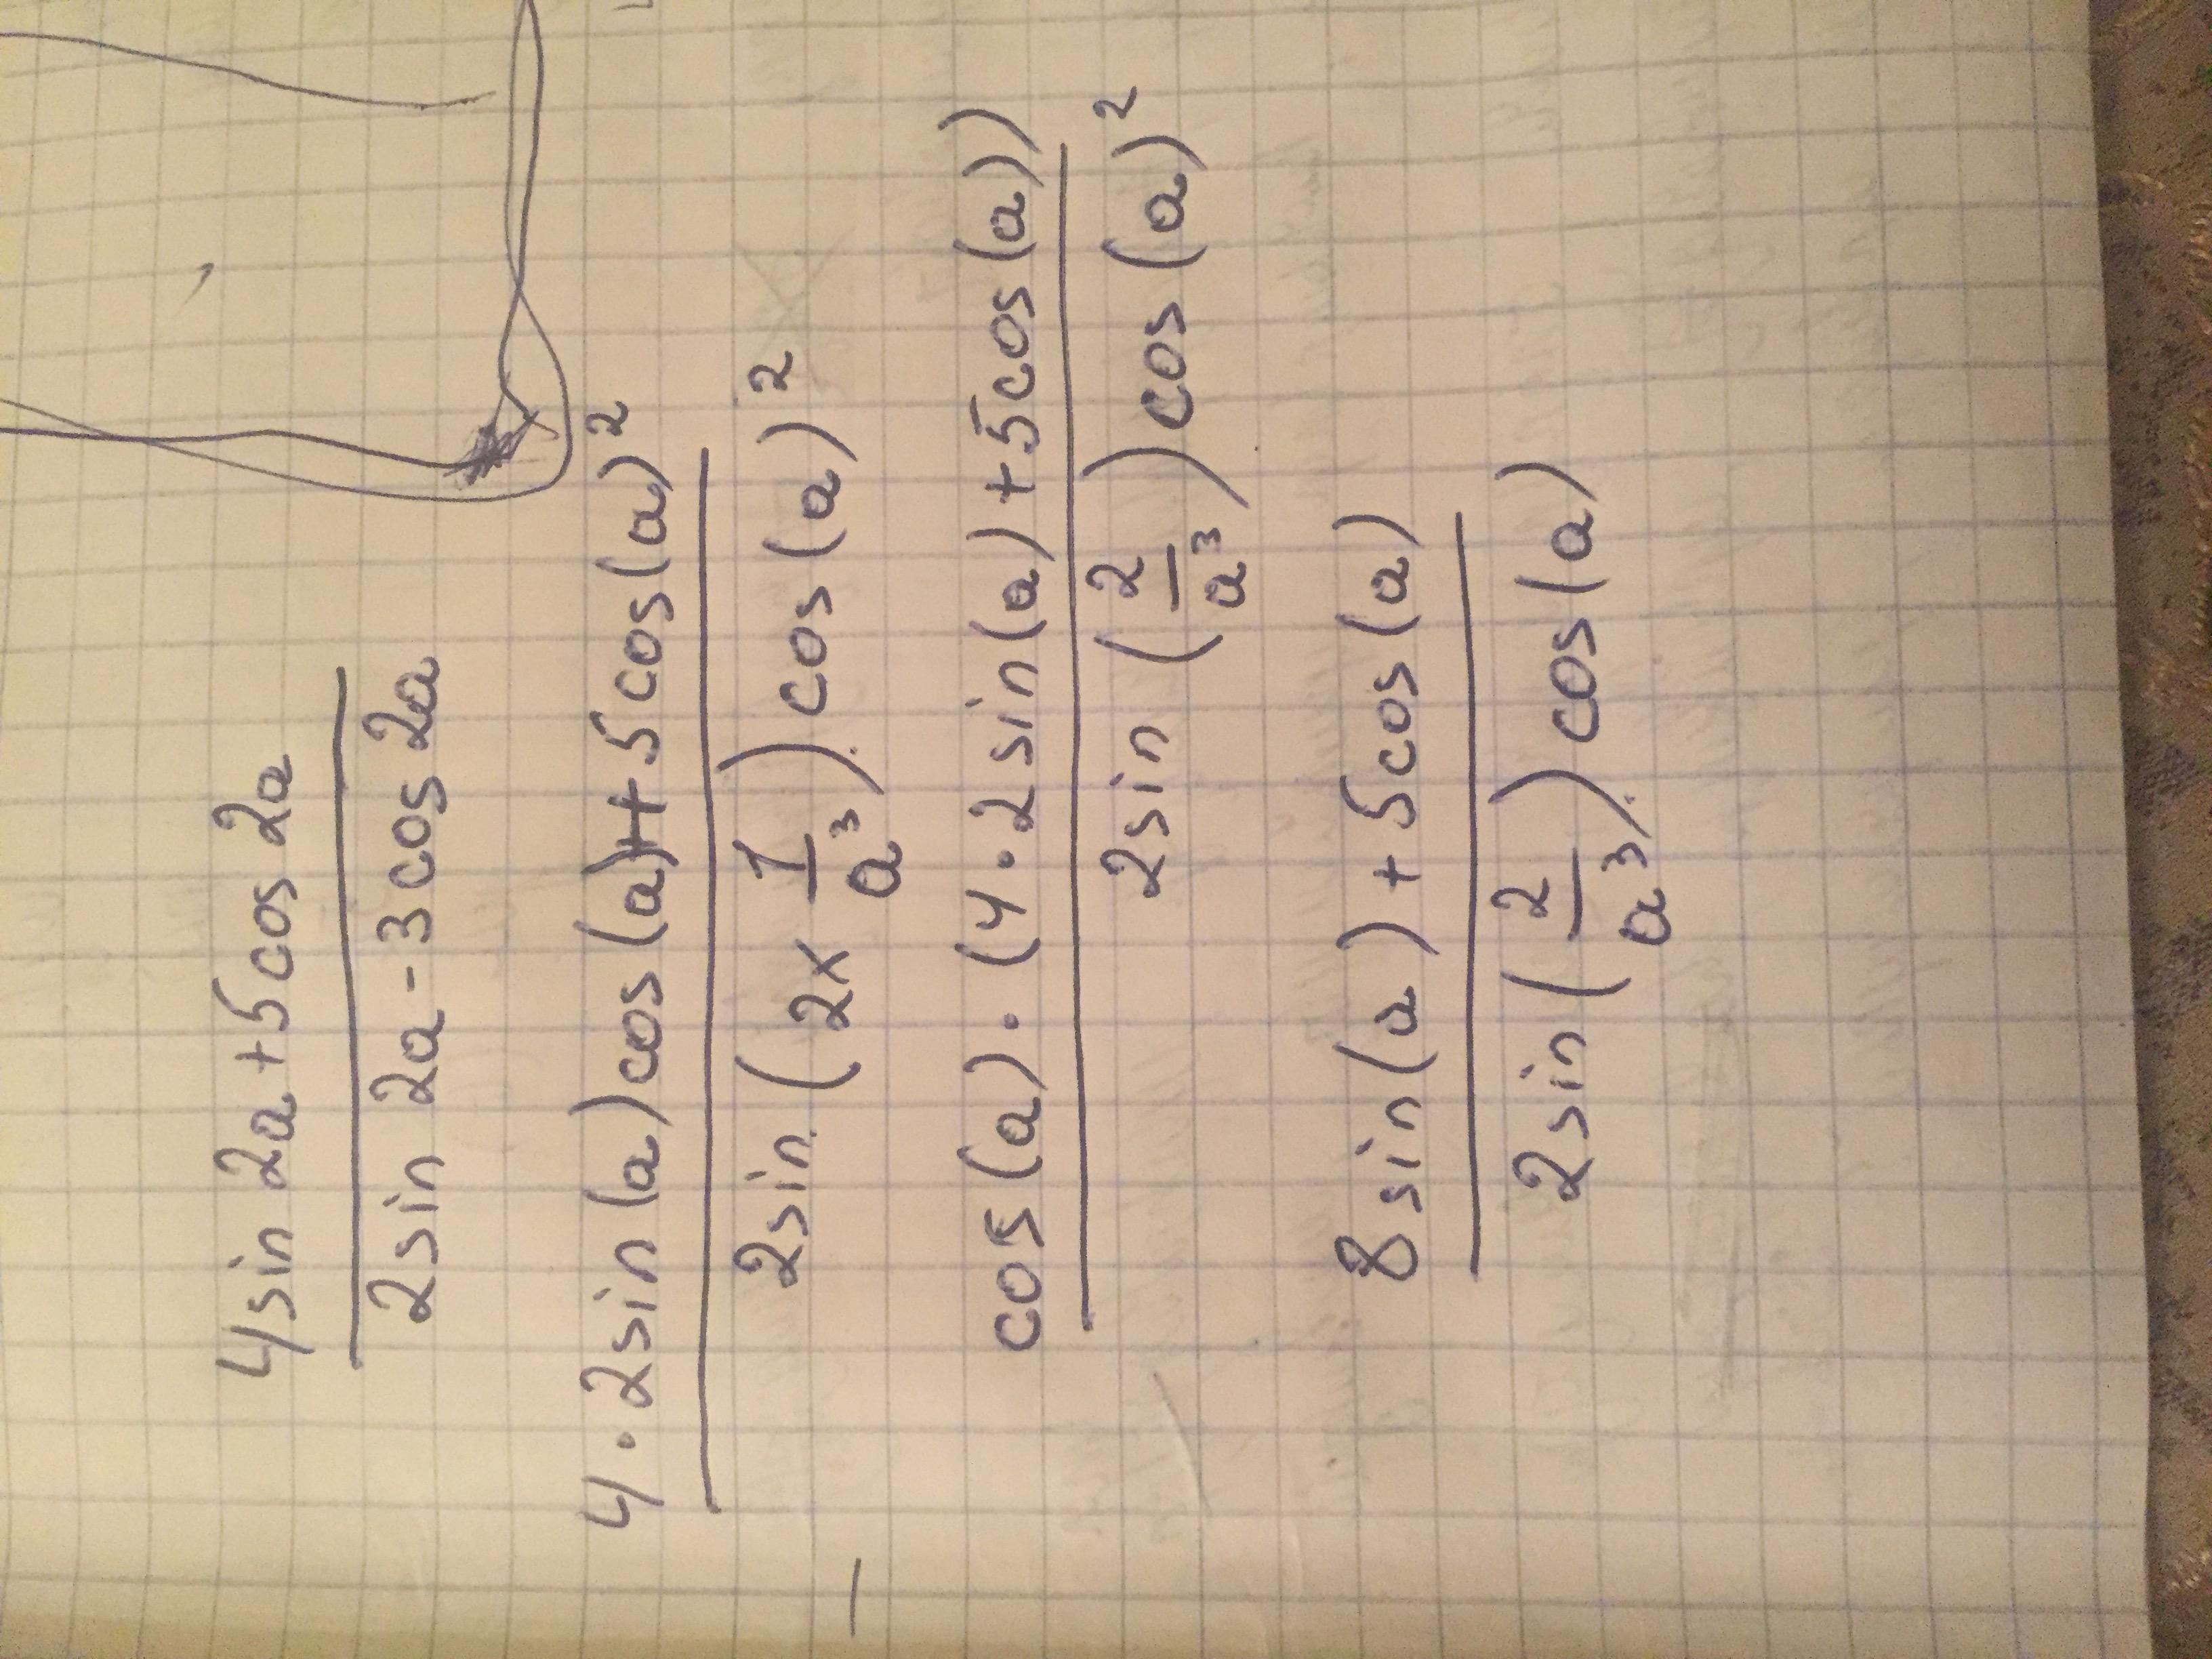 4sin 2a + 5cos 2a
2sin 2a - 3cos 2a
4 · 2sin(a)cos(a) + 5cos(a)²
2sin(2x 1/a³)cos(a)²
cos(a) · (4 · 2sin(a) + 5cos(a))
2sin(2/a³)cos(a)²
8sin(a) + 5cos(a)
2sin(2/a³)cos(a)